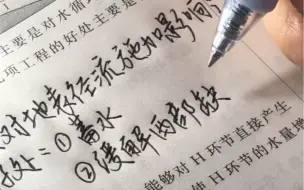 主要是对水循
项工程的好处主要是
对地表径流施加影响
好处:①蓄水
②缓解两部缺
能够对H环节直接产生
使H环节的水量增